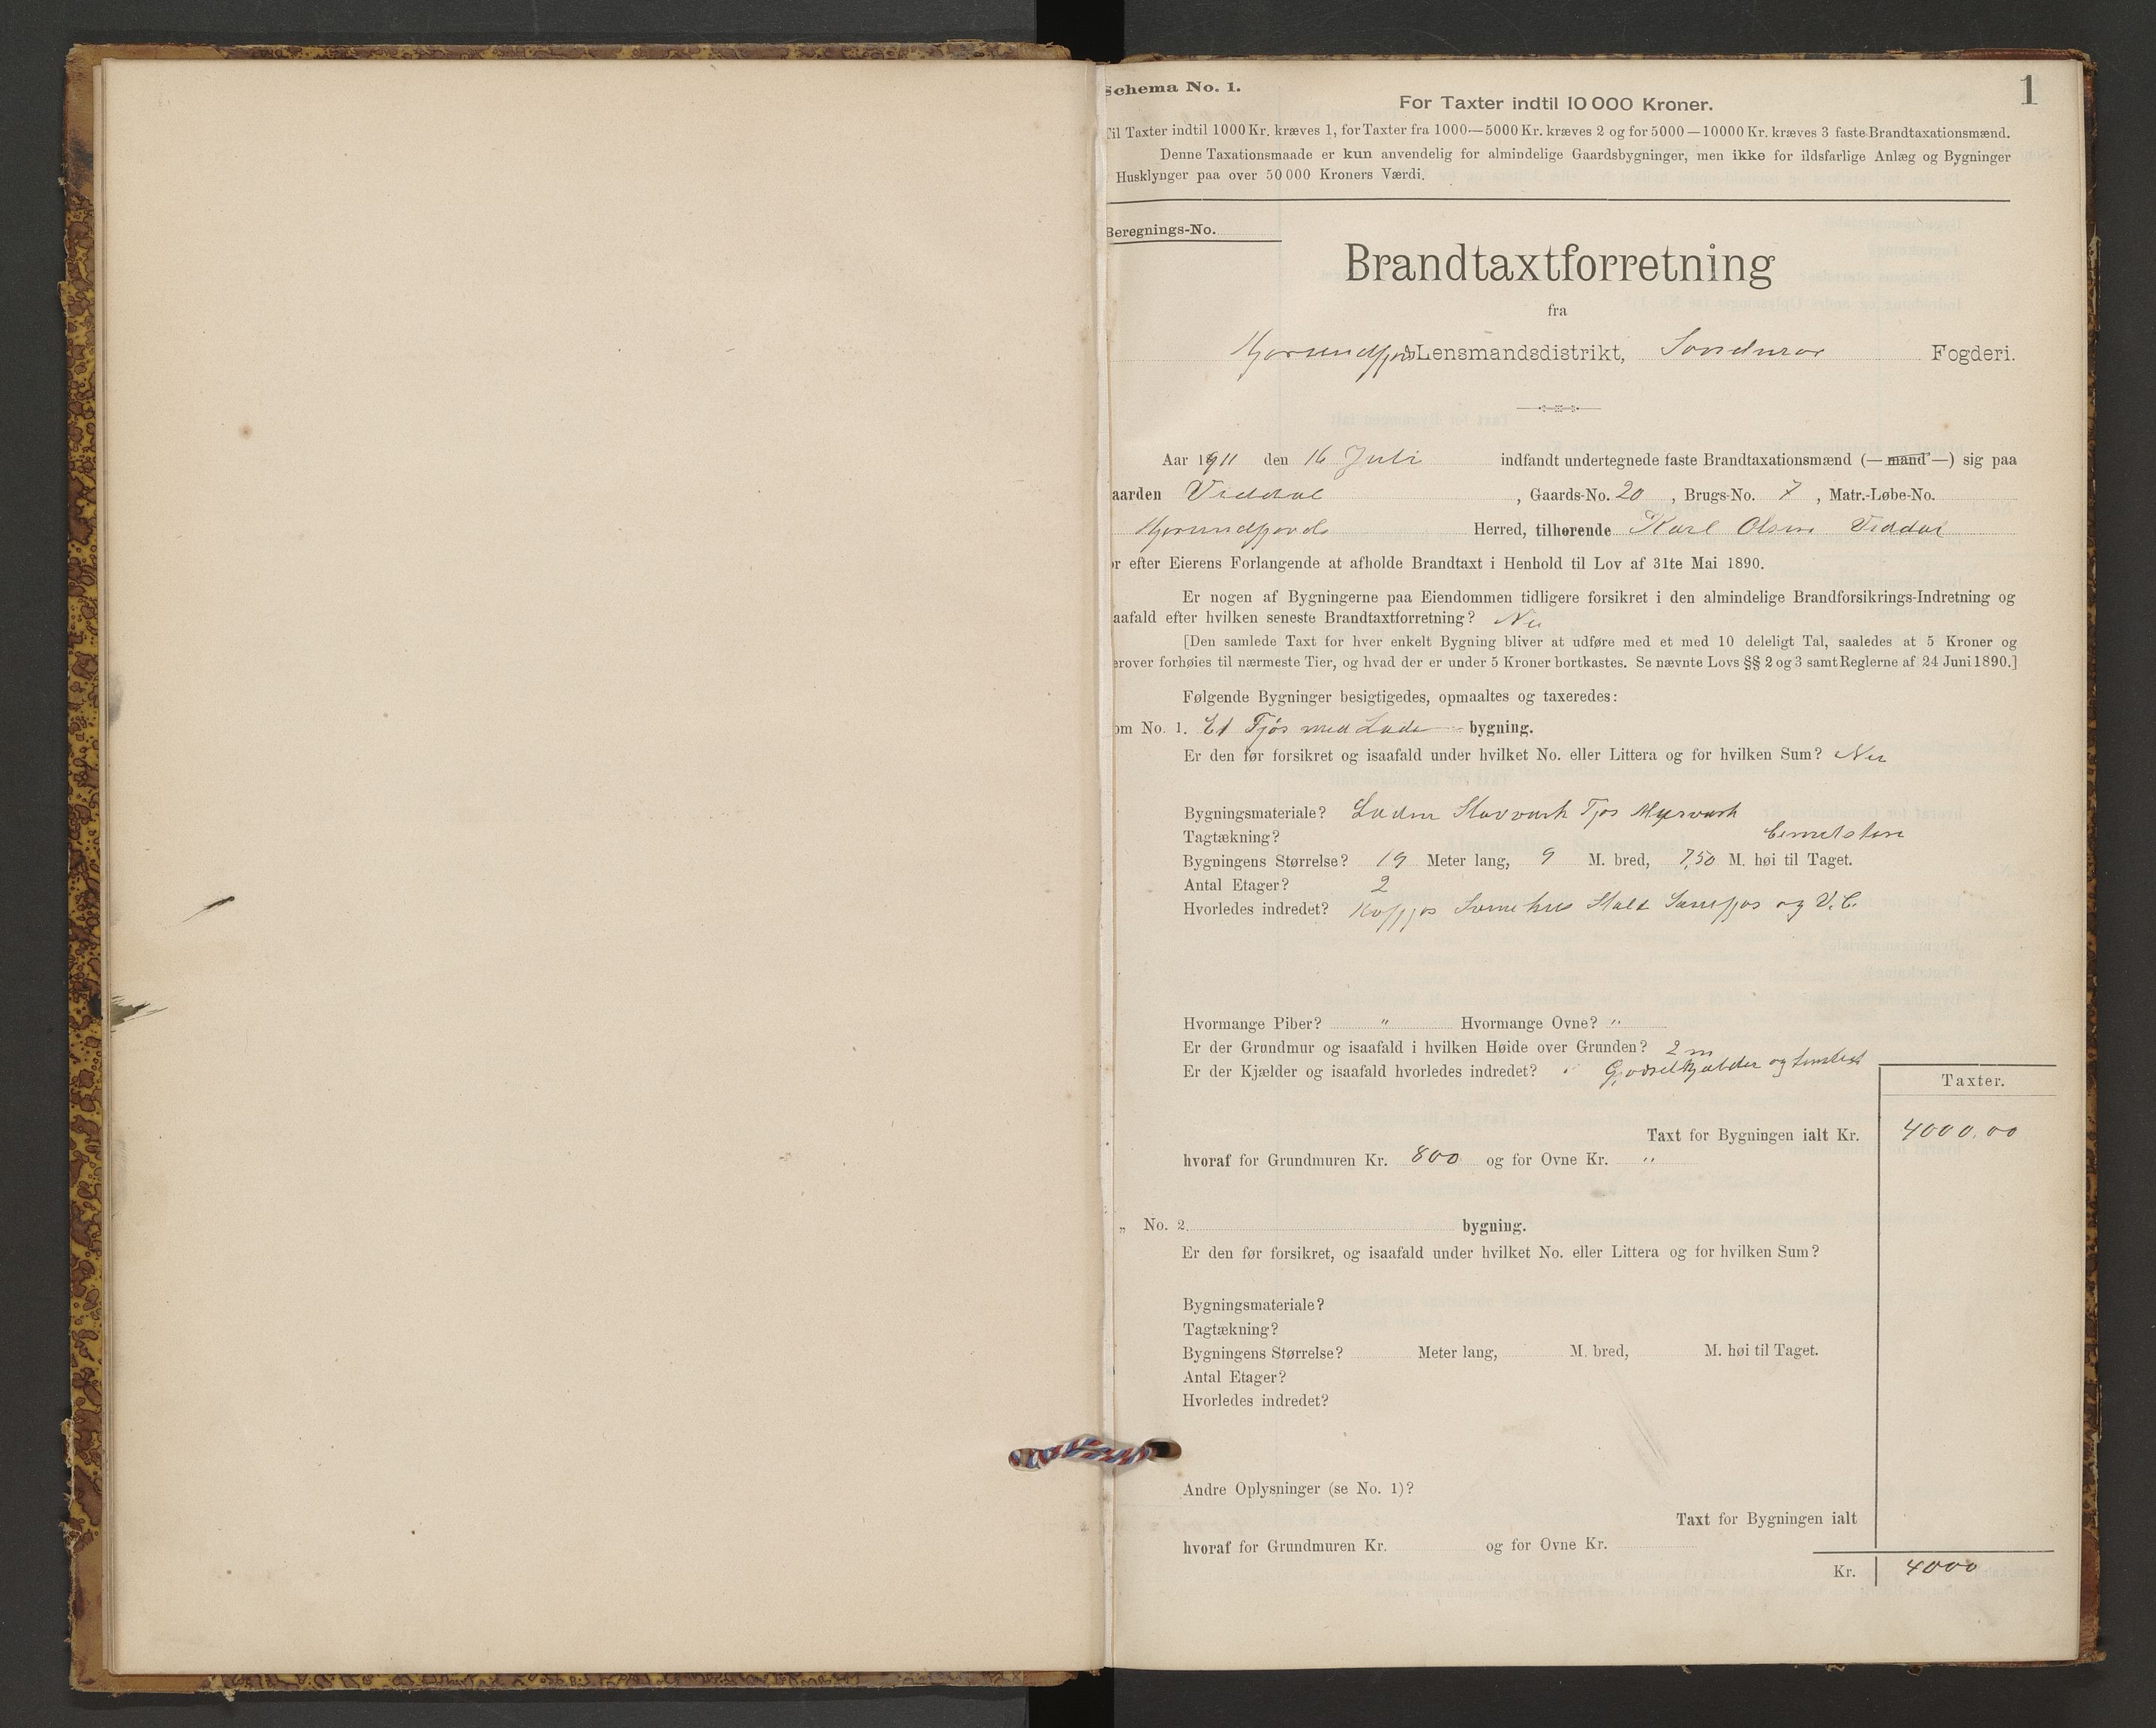 Schema No. 1.
1
For Taxter indtil 10 000 Kroner.
Til Taxter indtil 1000 Kr. kræves 1, for Taxter fra 1000—5000 Kr. kræves 2 og for 5000—10000 Kr. kræves 3 faste Brandtaxationsmænd.
Denne Taxationsmaade er kun anvendelig for almindelige Gaardsbygninger, men ikke for ildsfarlige Anlæg og Bygninger
Husklynger paa over 50 000 Kroners Værdi.
Beregnings-No.
Brandtaxtforretning
fra
Hjørundfjord Lensmandsdistrikt, Søndmør Fogderi.
Aar 1911 den 16 Juli indfandt undertegnede faste Brandtaxationsmænd (—mand—) sig paa
aarden Viddal, Gaards-No. 20, Brugs-No. 7, Matr.-Løbe-No.
Hjørundfjords Herred, tilhørende Karl Olsen Viddal
or efter Eierens Forlangende at afholde Brandtaxt i Henhold til Lov af 31te Mai 1890.
Er nogen af Bygningerne paa Eiendommen tidligere forsikret i den almindelige Brandforsikrings-Indretning og
aafald efter hvilken seneste Brandtaxtforretning? Nei
[Den samlede Taxt for hver enkelt Bygning bliver at udføre med et med 10 deleligt Tal, saaledes at 5 Kroner og
erover forhøies til nærmeste Tier, og hvad der er under 5 Kroner bortkastes. Se nævnte Lovs §§ 2 og 3 samt Reglerne af 24 Juni 1890.]
Følgende Bygninger besigtigedes, opmaaltes og taxeredes:
om No. 1. Et Fjøs med Lade bygning.
Er den før forsikret og isaafald under hvilket No. eller Littera og for hvilken Sum? Nei
Bygningsmateriale? Laden Stavverk Fjøs Murverk
Tagtækning? Cementsten
Bygningens Størrelse? 19 Meter lang, 9 M. bred, 7,50 M. høi til Taget.
Antal Etager? 2
Hvorledes indredet? Kofjøs Svinehus Stald Sauefjøs og V.C.
Hvormange Piber? " Hvormange Ovne? "
Er der Grundmur og isaafald i hvilken Høide over Grunden? 2 m
Er der Kjælder og isaafald hvorledes indredet? Gjødselkjælder og
Taxter.
Taxt for Bygningen ialt Kr. 4000,00
hvoraf for Grundmuren Kr. 800 og for Ovne Kr. "
„ No. 2. bygning.
Er den før forsikret, og isaafald under hvilket No. eller Littera og for hvilken Sum?
Bygningsmateriale?
Tagtækning?
Bygningens Størrelse? Meter lang, M. bred, M. høi til Taget.
Antal Etager?
Hvorledes indredet?
Andre Oplysninger (se No. 1)?
Taxt for Bygningen ialt
hvoraf for Grundmuren Kr. og for Ovne Kr.
Kr. 4000